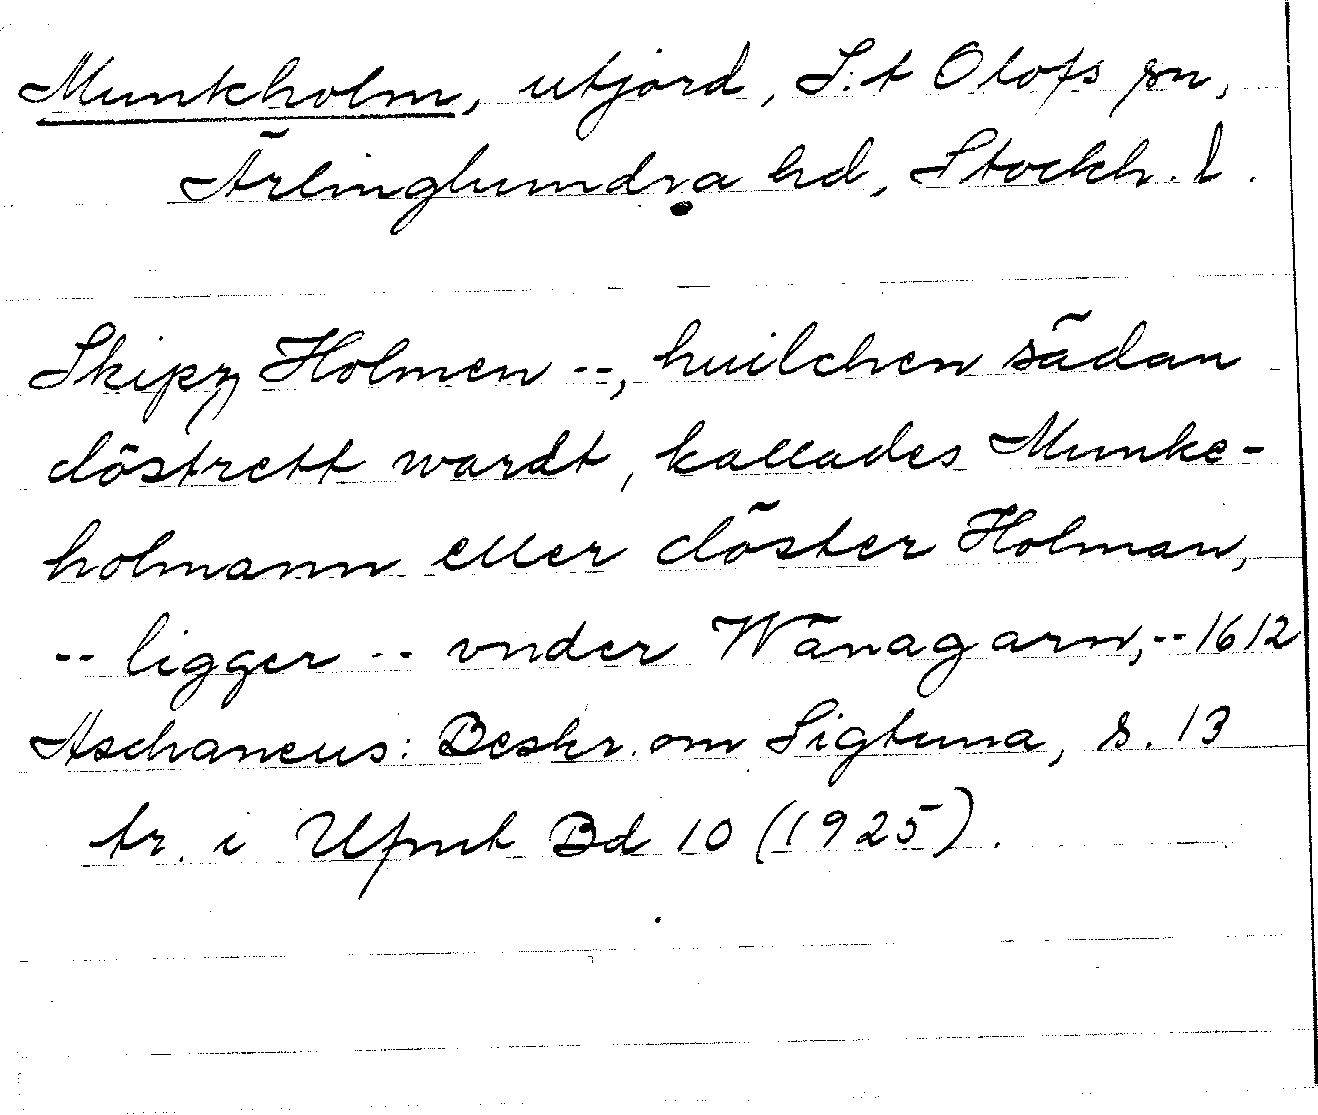 Munkholm, utjord, S:t Olofs sn,
Ärlinghundra hd, Stockh. l.
Skipz Holmen --, huilchen sādan
clöstrett wardt, kallades Munke-
holmann eller clöster Holman,
-- ligger -- vnder Wänagarn, -- 1612
Aschaneus: Beskr. om Sigtuna, s. 13
tr. i Ufmt Bd 10 (1925).